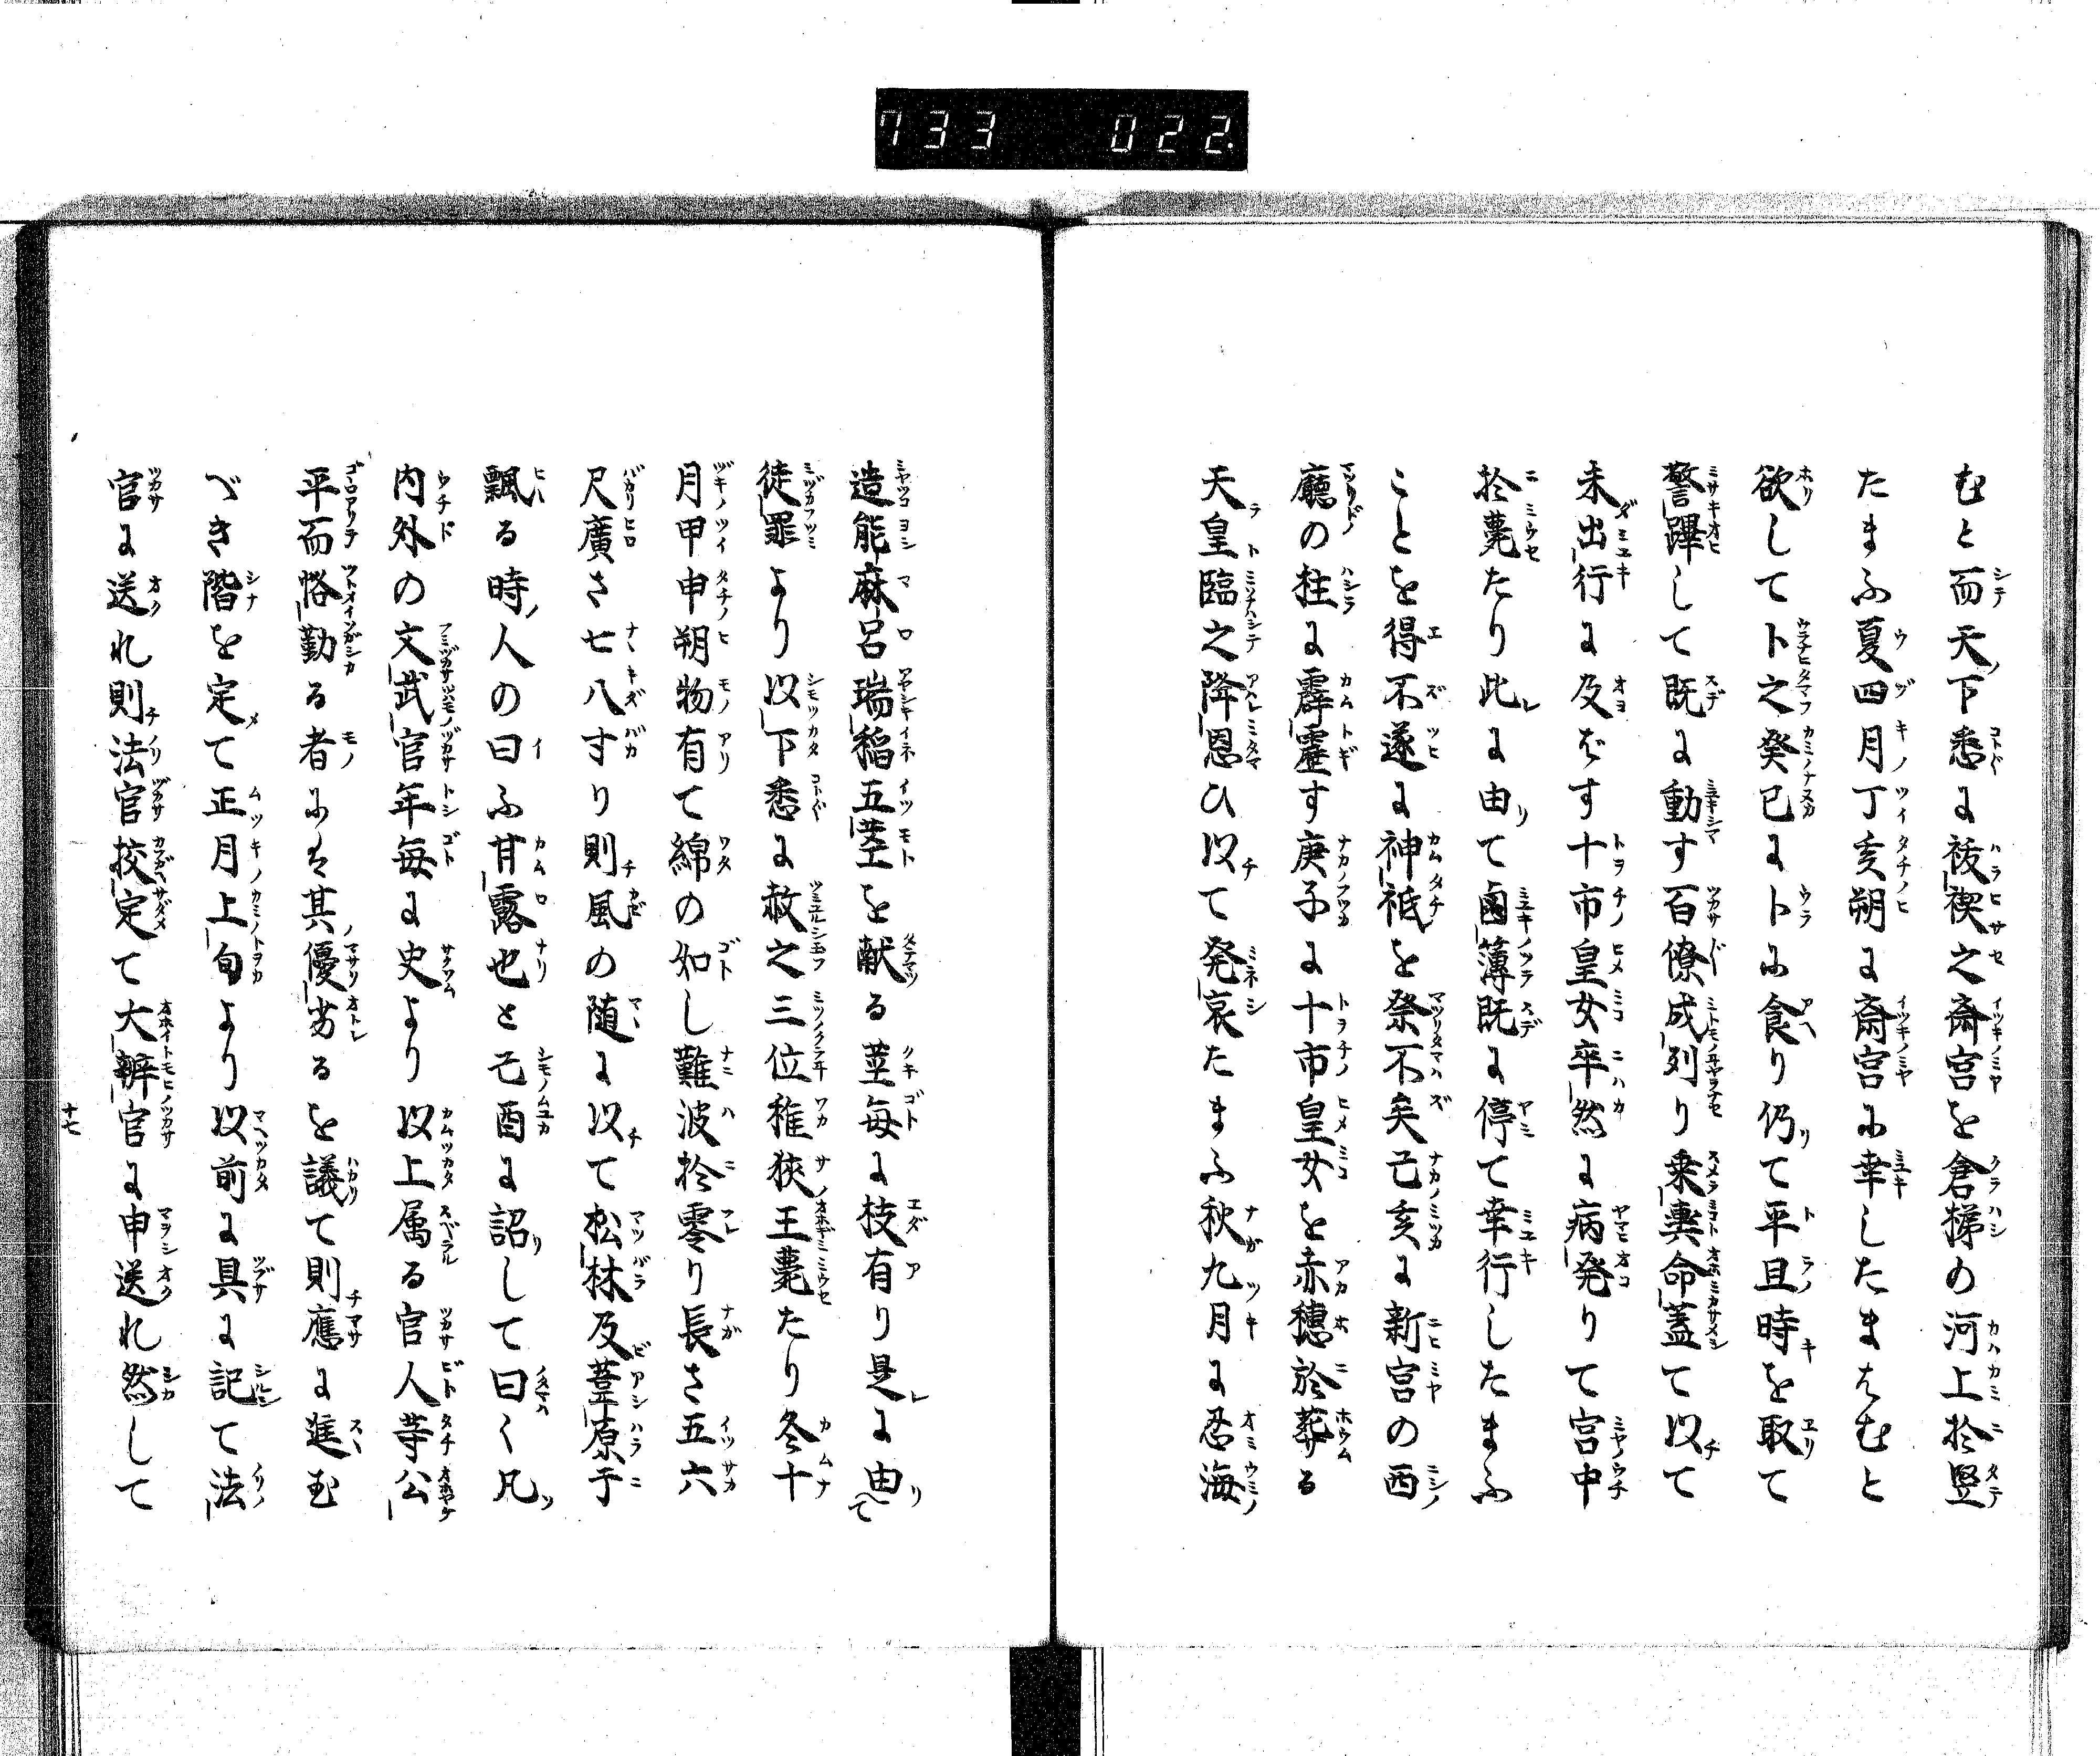 733 022.
むと而天下悉に祓禊之斎宮を倉梯の河上於竪
たまふ夏四月丁亥朔に斎宮に幸したまはむと
欲して卜之癸巳に卜に食り仍て平旦時を取て
警蹕して既に動す百僚成列り乗輿命蓋て以て
未出行に及ばす十市皇女卒然に病発りて宮中
於薨たり此に由て鹵薄既に停て幸行したまふ
ことを得不遂に神祇を祭不矣己亥に新宮の西
廳の柱に霹靂す庚子に十市皇女を赤穂於葬る
天皇臨之降恩ひ以て発哀たまふ秋九月に忍海
造能麻呂瑞稲五茎を献る茎毎に枝有り是に由て
徒罪より以下悉に赦之三位稚狭王薨たり冬十
月甲申朔物有て綿の如し難波於零り長さ五六
尺廣さ七八寸り則風の随に以て松林及葦原于
飄る時人の曰ふ甘露也と己酉に詔して曰く凡
内外の文武官年毎に史より以上属る官人等公
平而恪勤る者には其優劣るを議て則應に進む
べき階を定て正月上旬より以前に具に記て法
官に送れ則法官挍定て大辨官に申送れ然して
十七